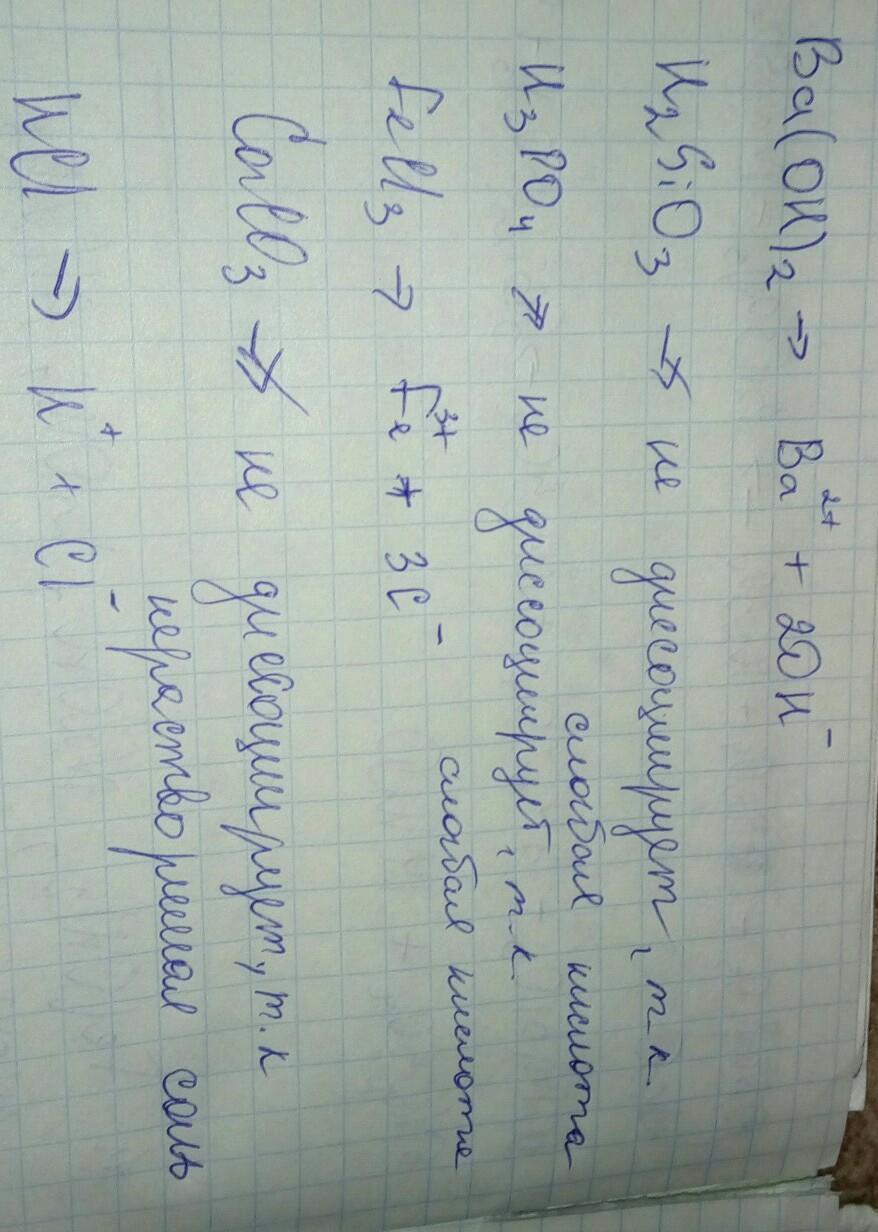 Ba(OH)₂ → Ba²⁺ + 2OH⁻
H₂SiO₃ ↛ не диссоциирует, т.к.
слабая кислота
H₃PO₄ ↛ не диссоциирует, т.к.
слабая кислота
FeCl₃ → Fe³⁺ + 3C⁻
CaCO₃ ↛ не диссоциирует, т.к
нерастворимая соль
HCl → H⁺ + Cl⁻